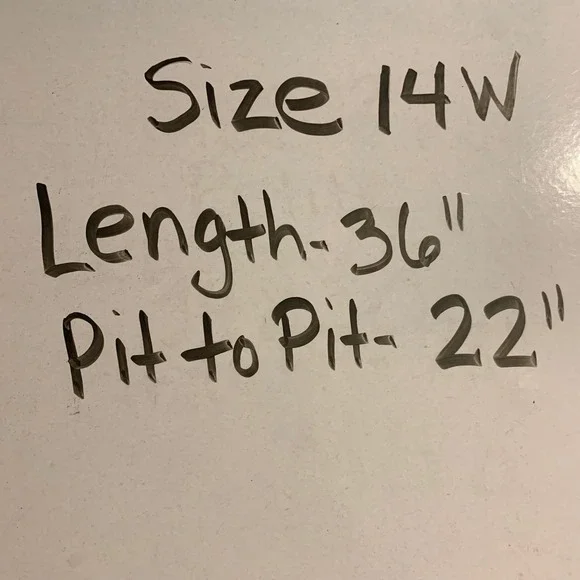 Size 14W
Length- 36"
Pit to Pit- 22"